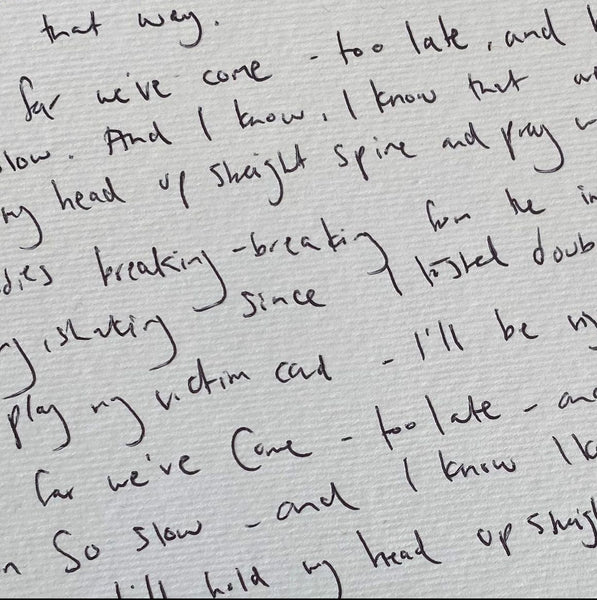 that way.
far we've come - too late, and
slow. And I know, I know that
my head up straight spine and pray
breaking-breaking from the
shaking since I
play my victim card - I'll be my
far we've Come - too late - and
So slow - and I know I
I'll hold my head up straight